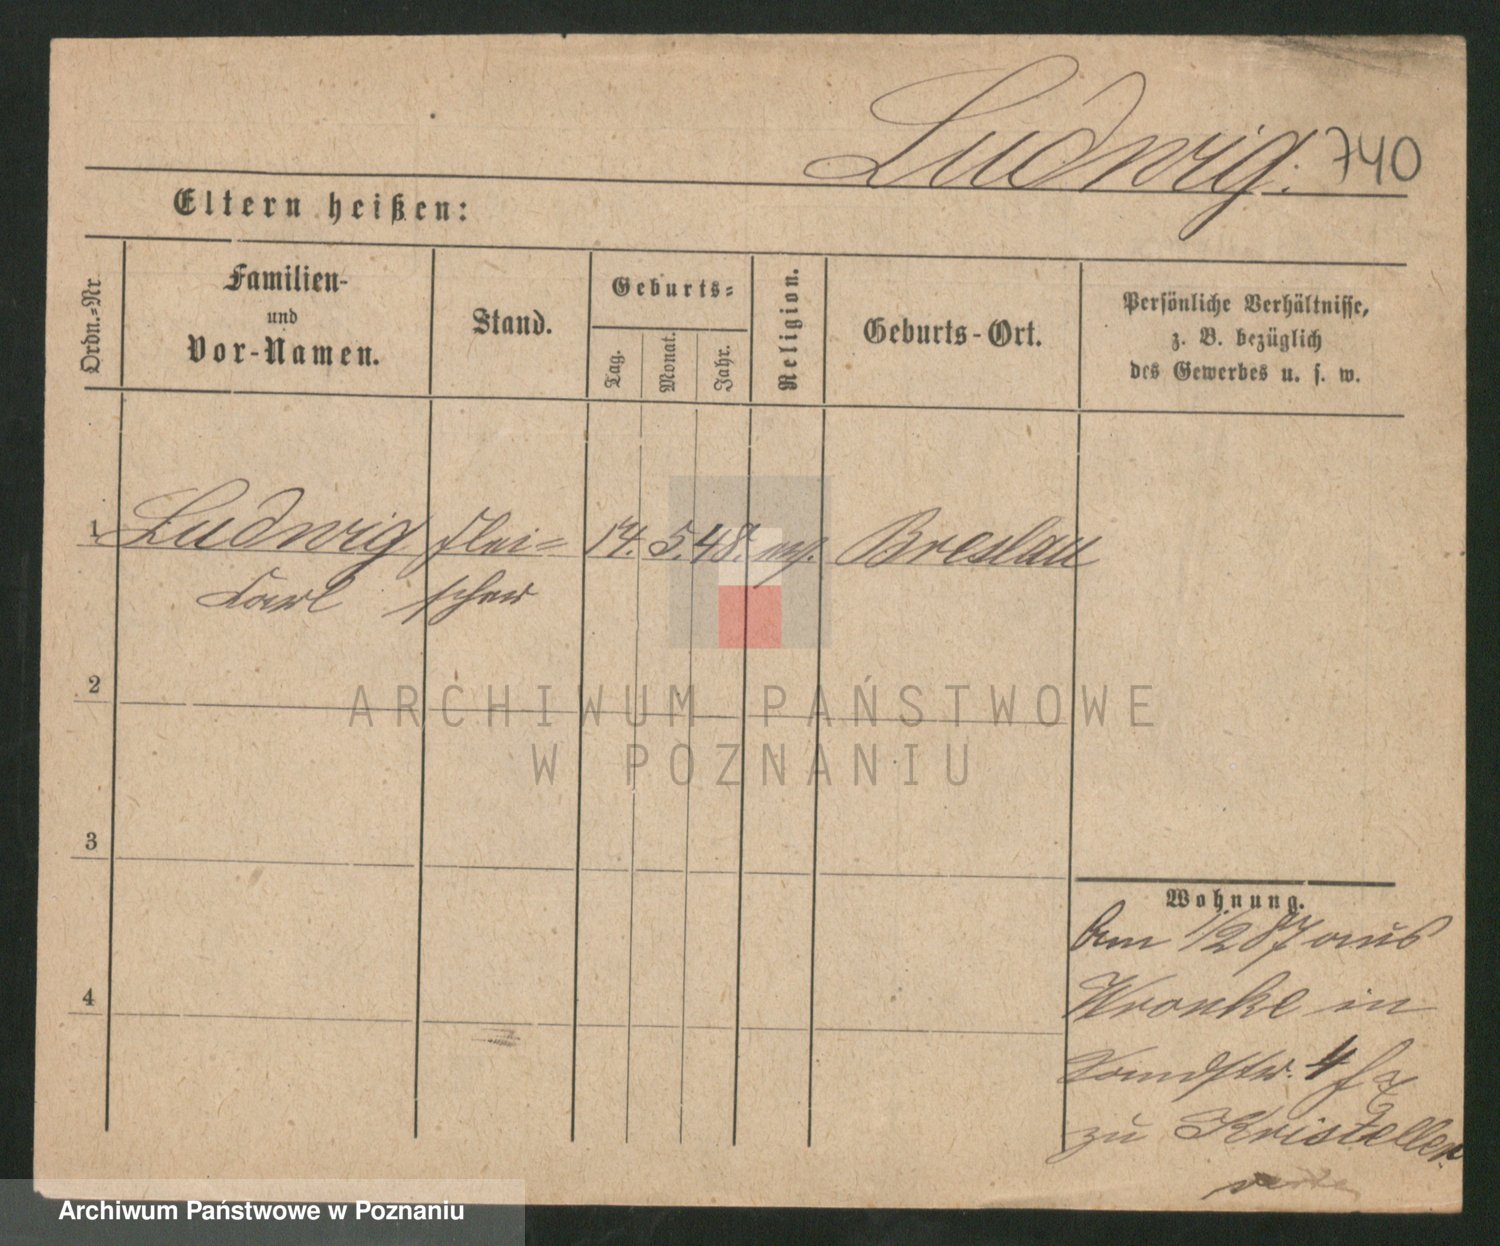 Ludwig. 740
Eltern heißen:
Ordn.=Nr
Familien-
und
Vor-Namen.
Stand.
Geburts=
Tag.
Monat.
Jahr.
Religion.
Geburts-Ort.
Persönliche Verhältnisse,
z. B. bezüglich
des Gewerbes u. s. w.
1 Ludwig Flei= 14. 5. 48. Breslau
Carl scher
2
3
4
Wohnung.
Am 1/2 87 aus
Wronke in
Sandstr. 4
zu Kristeller
ARCHIWUM PAŃSTWOWE
W POZNANIU
Archiwum Państwowe w Poznaniu